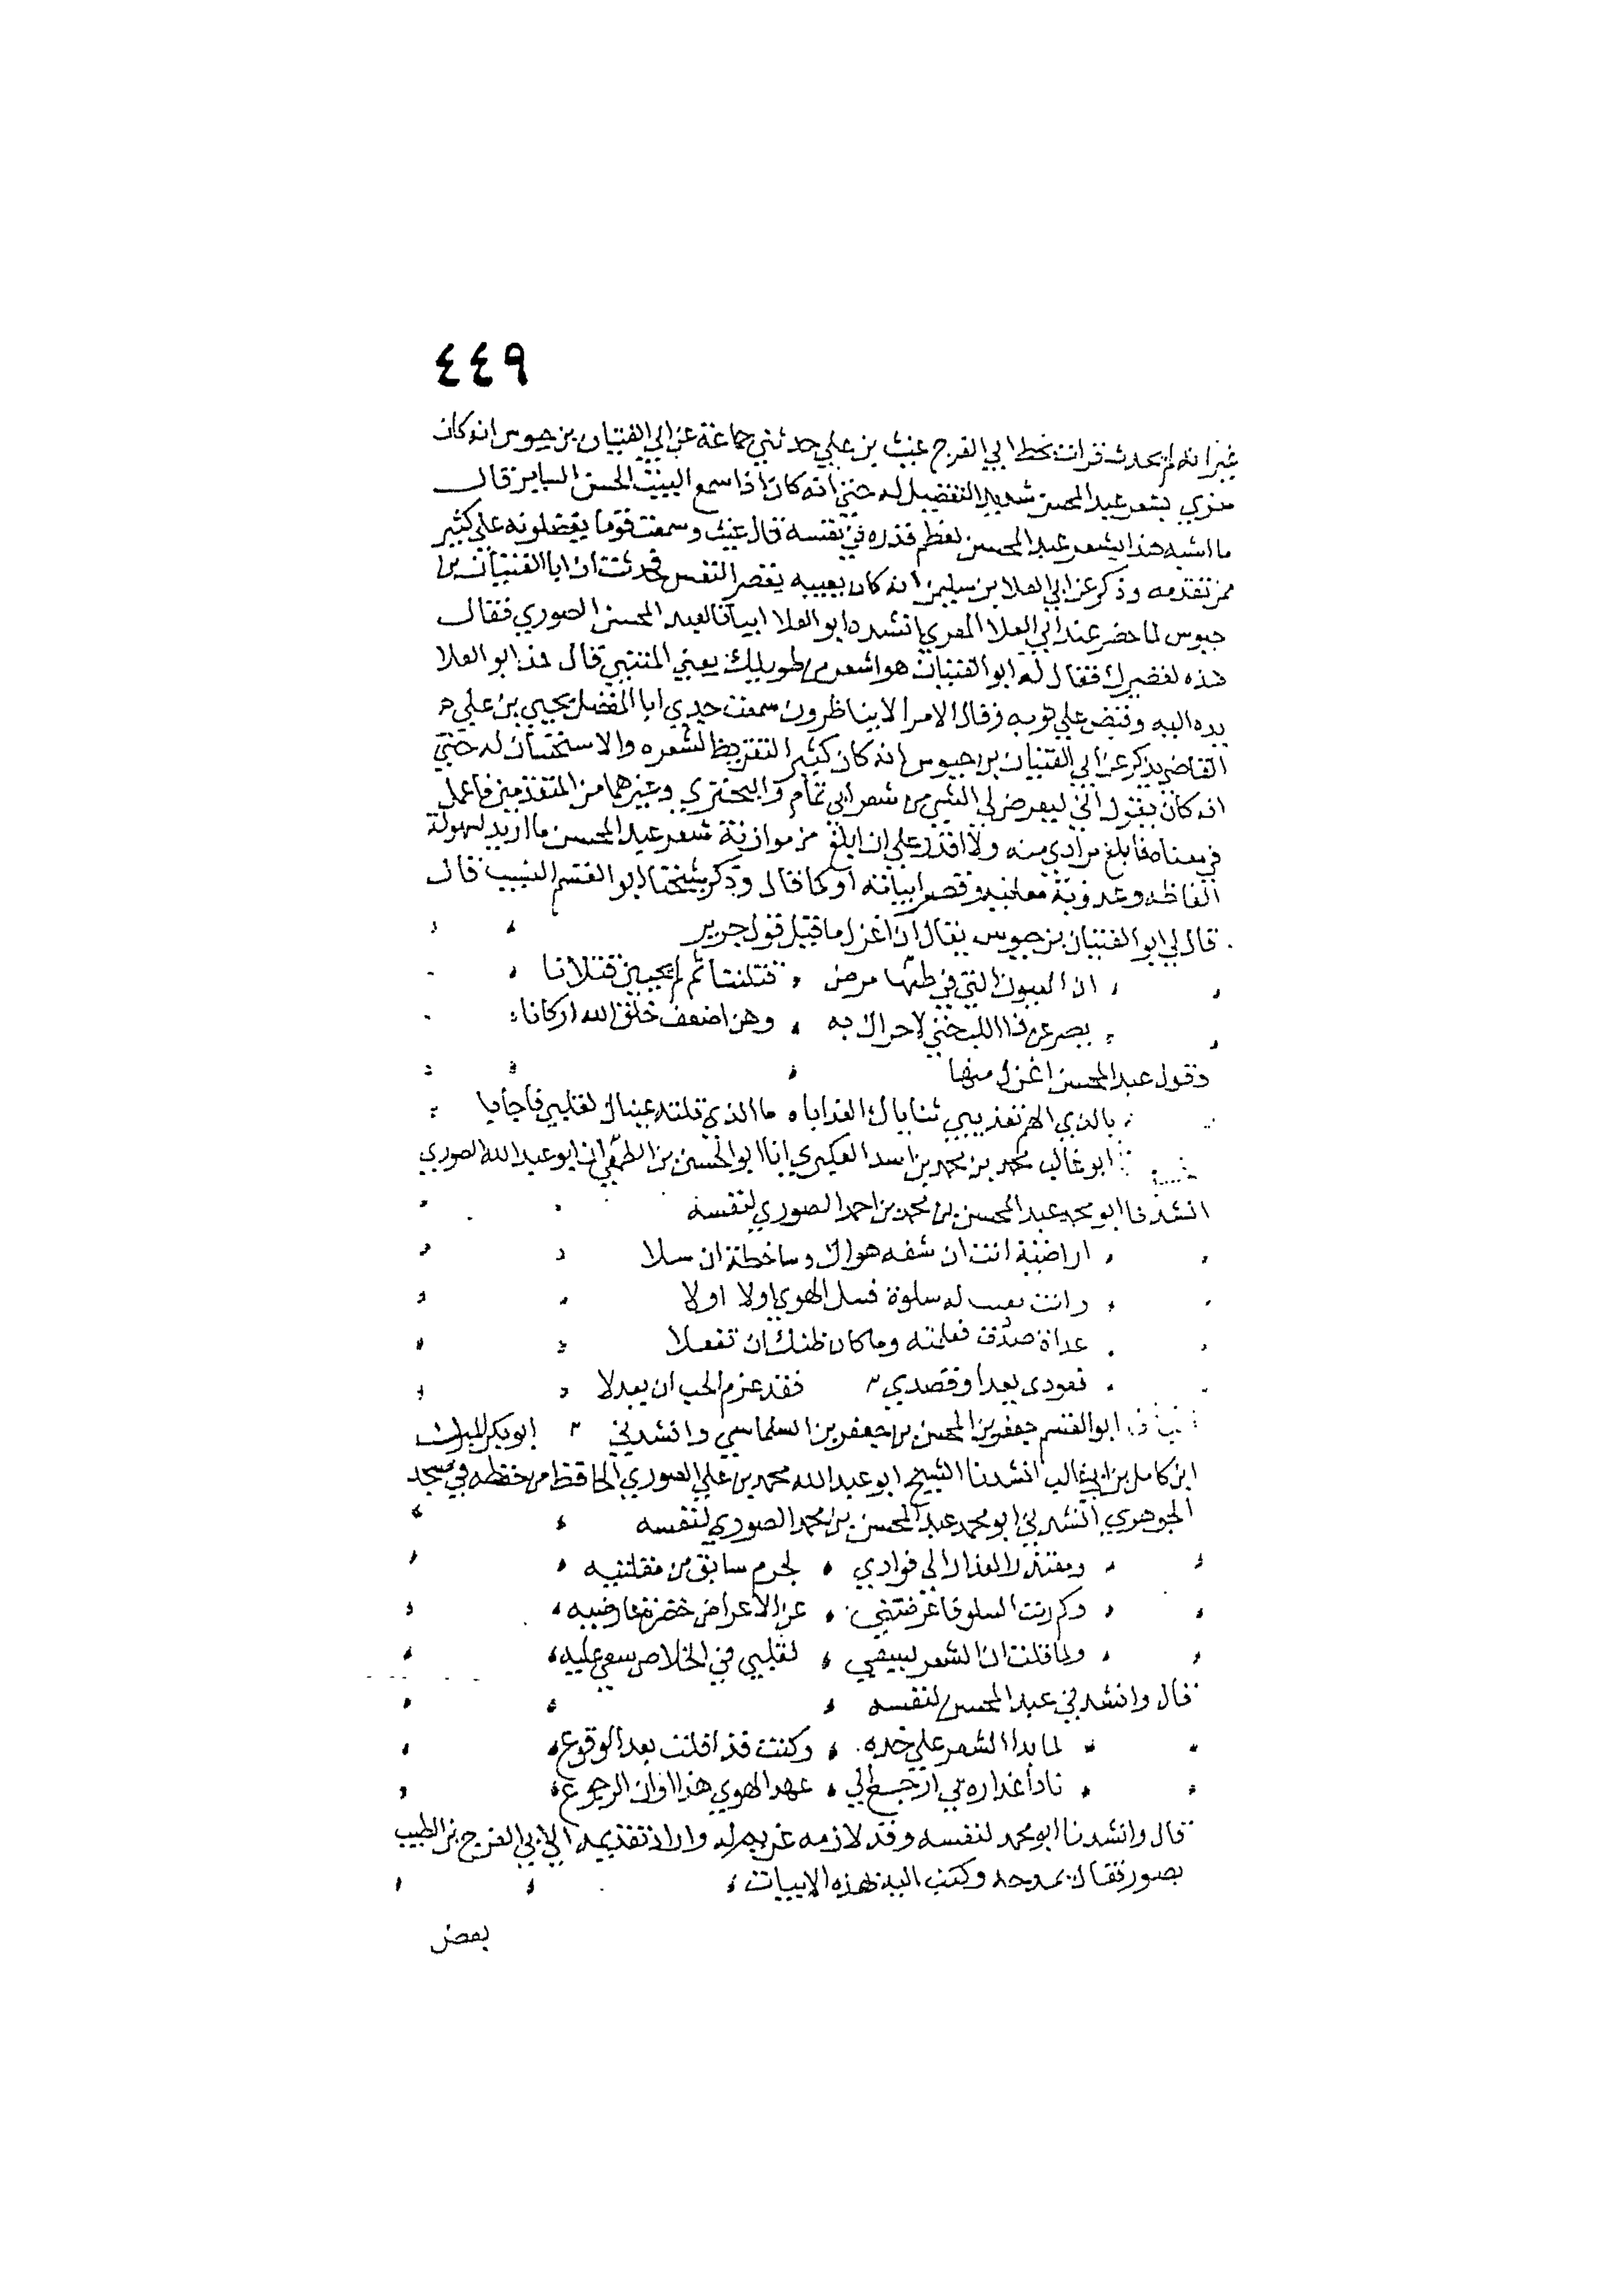 ٤٤٩
غير انه لم يحدث قرات بخط ابي الفرج غيث بن علي حدثني جماعة عن ابي الفتيان بن حيوس انه كان
مغري بشعر عبد المحسن شديد التفضيل له حتي انه كان اذا سمع البيت الحسن الساير قال
ما اشبه هذا بشعر عبد المحسن لعظم قدره في نفسه قال غيث وسمعت قوما يفضلونه علي كثير
ممن تقدمه وذكر عن ابي العلا بن سليمن انه كان يعيبه بقصر النفس فحدثت ان ابا الفتيان بن
حيوس لما حضر عند ابي العلا المعري انشده ابو العلا ابياتا لعبد المحسن الصوري فقال
هذه لقصيرك فقال له ابو الفتيان هو اشعر من طويلك يعني المتنبي قال فمد ابو العلا
يده اليه وقبض علي ثوبه وقال الامرا لا يناظرون سمعت جدي ابا المفضل يحيي بن علي
القاضي يذكر عن ابي الفتيان بن حيوس انه كان كثير التقريظ لشعره والاستحسان له حتي
انه كان يقول اني ليعرض لي الشي من شعر ابي تمام والبحتري وغيرهما من المتقدمين فاعمل
في معناه فابلغ مرادي منه ولا اقدر علي ان ابلغ من موازنة شعر عبد المحسن ما اريد لسهولة
الفاظه وعذوبة معانيه وقصر ابياته او كما قال وذكر شيخنا ابو القسم النسيب قال
قال لي ابو الفتيان بن حيوس يقال ان اغزل ما قيل قول جرير
ان العيون التي في طرفها مرض قتلننا ثم لم يحيين قتلانا
يصرعن ذا اللب حتي لا حراك به وهن اضعف خلق الله اركانا
وقول عبد المحسن اغزل منها
بالذي الهم تعذيبي ثناياك العذابا ما الذي قالته عيناك لقلبي فاجابا
ابو غالب محمد بن محمد بن اسد العكبري انا ابو الحسين بن الطيوري ابو عبد الله الصوري
انشدنا ابو محمد عبد المحسن بن محمد بن احمد الصوري لنفسه
اراضية انت ان شفه هواك وساخطة ان سلا
وانت له سلوة فسل الهوي اولا اولا
غداة صددت فعلمته وما كان ظنك ان تفعلا
تعودي بعدا وقصدي فقد عزم الحب ان يعدلا
ابو القسم جعفر بن المحسن بن جعفر بن السلماسي وانشدني ابو بكر المبارك
ابن كامل بن ابي غالب انشدنا الشيخ ابو عبد الله محمد بن علي الصوري الحافظ من حفظه في مسجد
الجوهري انشدني ابو محمد عبد المحسن بن محمد الصوري لنفسه
ومعتذر العذار الي فوادي لجرم سابق من مقلتيه
وكم رمت السلو فاعرضتني عن الاعراض خضرة عارضيه
ولما قلت ان الشعر يسعي لقلبي في الخلاص سعي عليه
قال وانشدني عبد المحسن لنفسه
لما بدا الشعر علي خده وكنت قد افلت بعد الوقوع
نادا عذاره بي ارجع الي عهد الهوي هذا اوان الرجوع
قال وانشدنا ابو محمد لنفسه وقد لازمه غريم له واراد تقديمه الي ابي الفرج بن الطبيب
بصور فقال يمدحه وكتب اليه بهذه الابيات
بعض